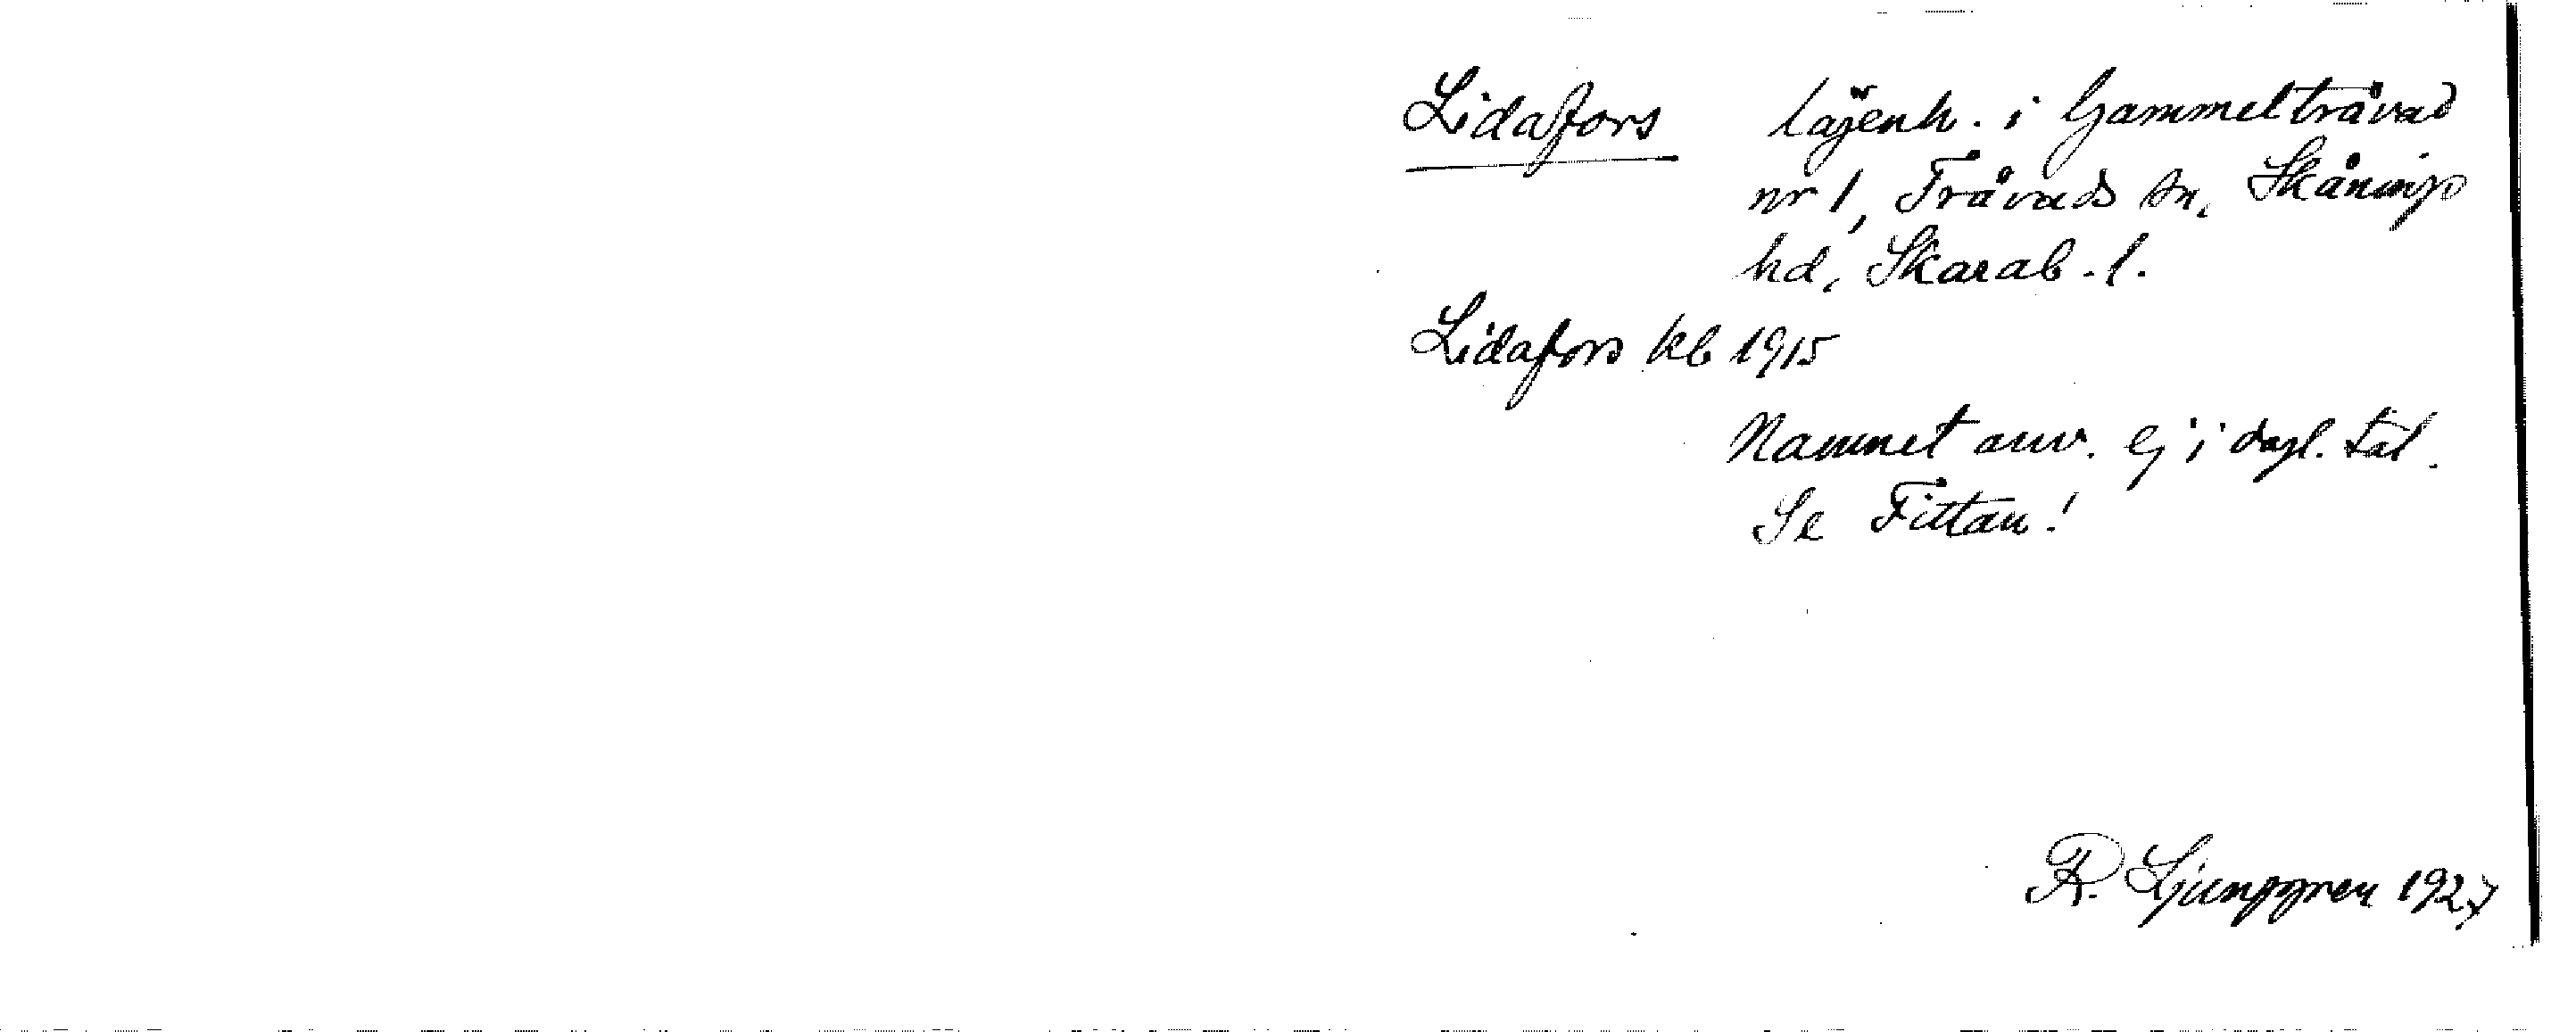 Lidafors lägenh. i Gammeltråvad
nr 1, Tråvads sn, Skånings
hd, Skarab. l.
Lidafors kb 1915
Namnet anv. ej i dagl. tal.
Se Fittan!
R. Ljunggren 1927